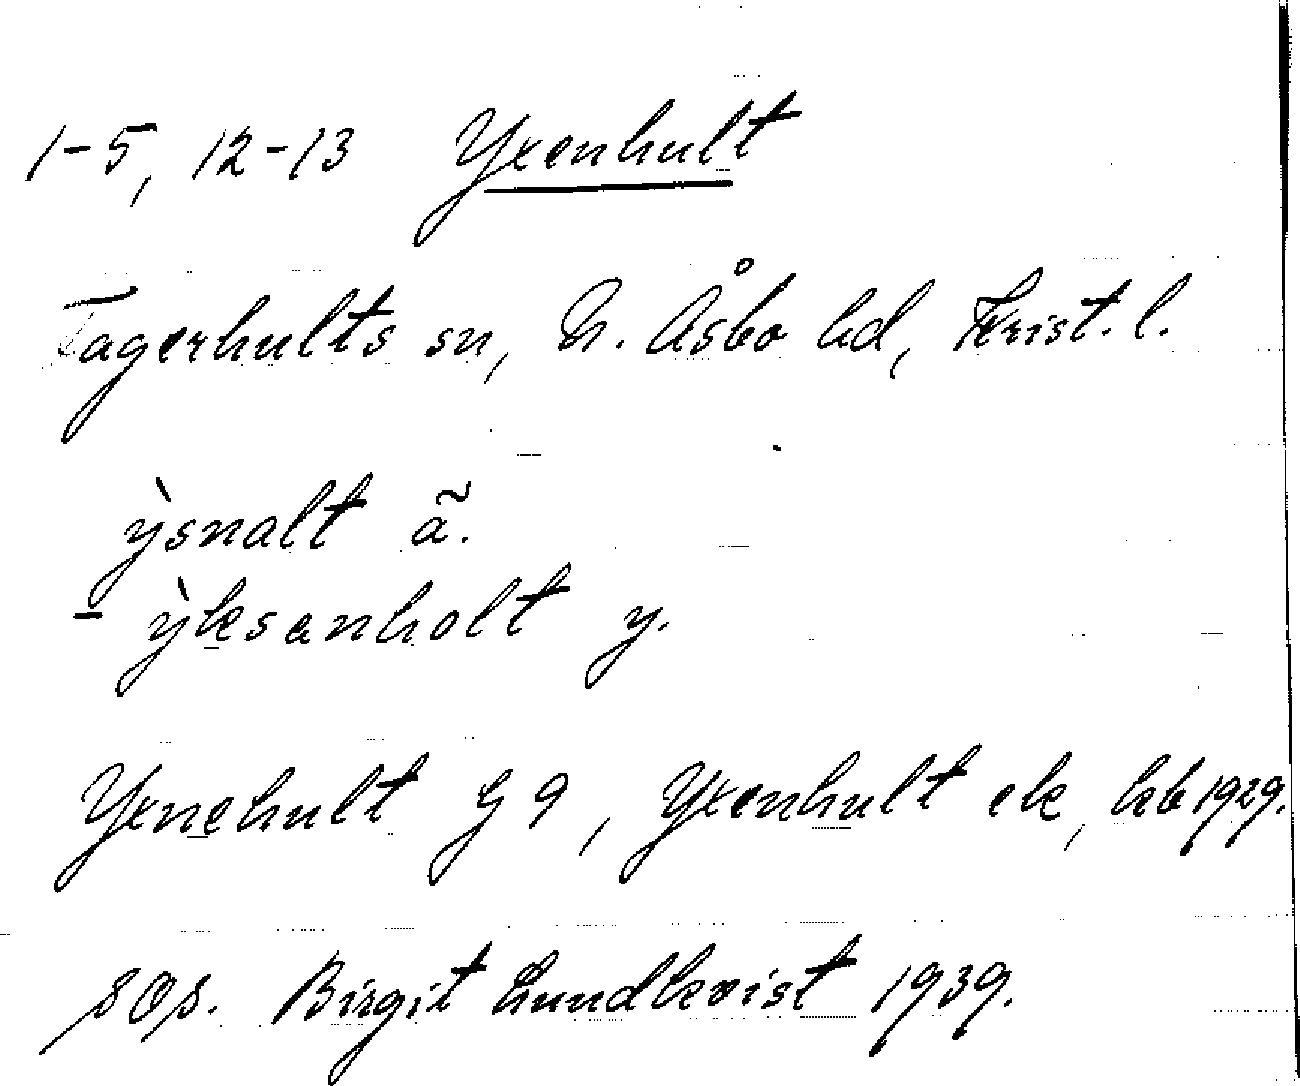 1-5, 12-13 Yxenhult
Fagerhults sn, N. Åsbo hd, Krist. l.
ỳsnalt ã.
- ỳksanholt y.
Yxnehult G 9, Yxenhult ek, kb 1929.
sOs. Birgit Lundkvist 1939.